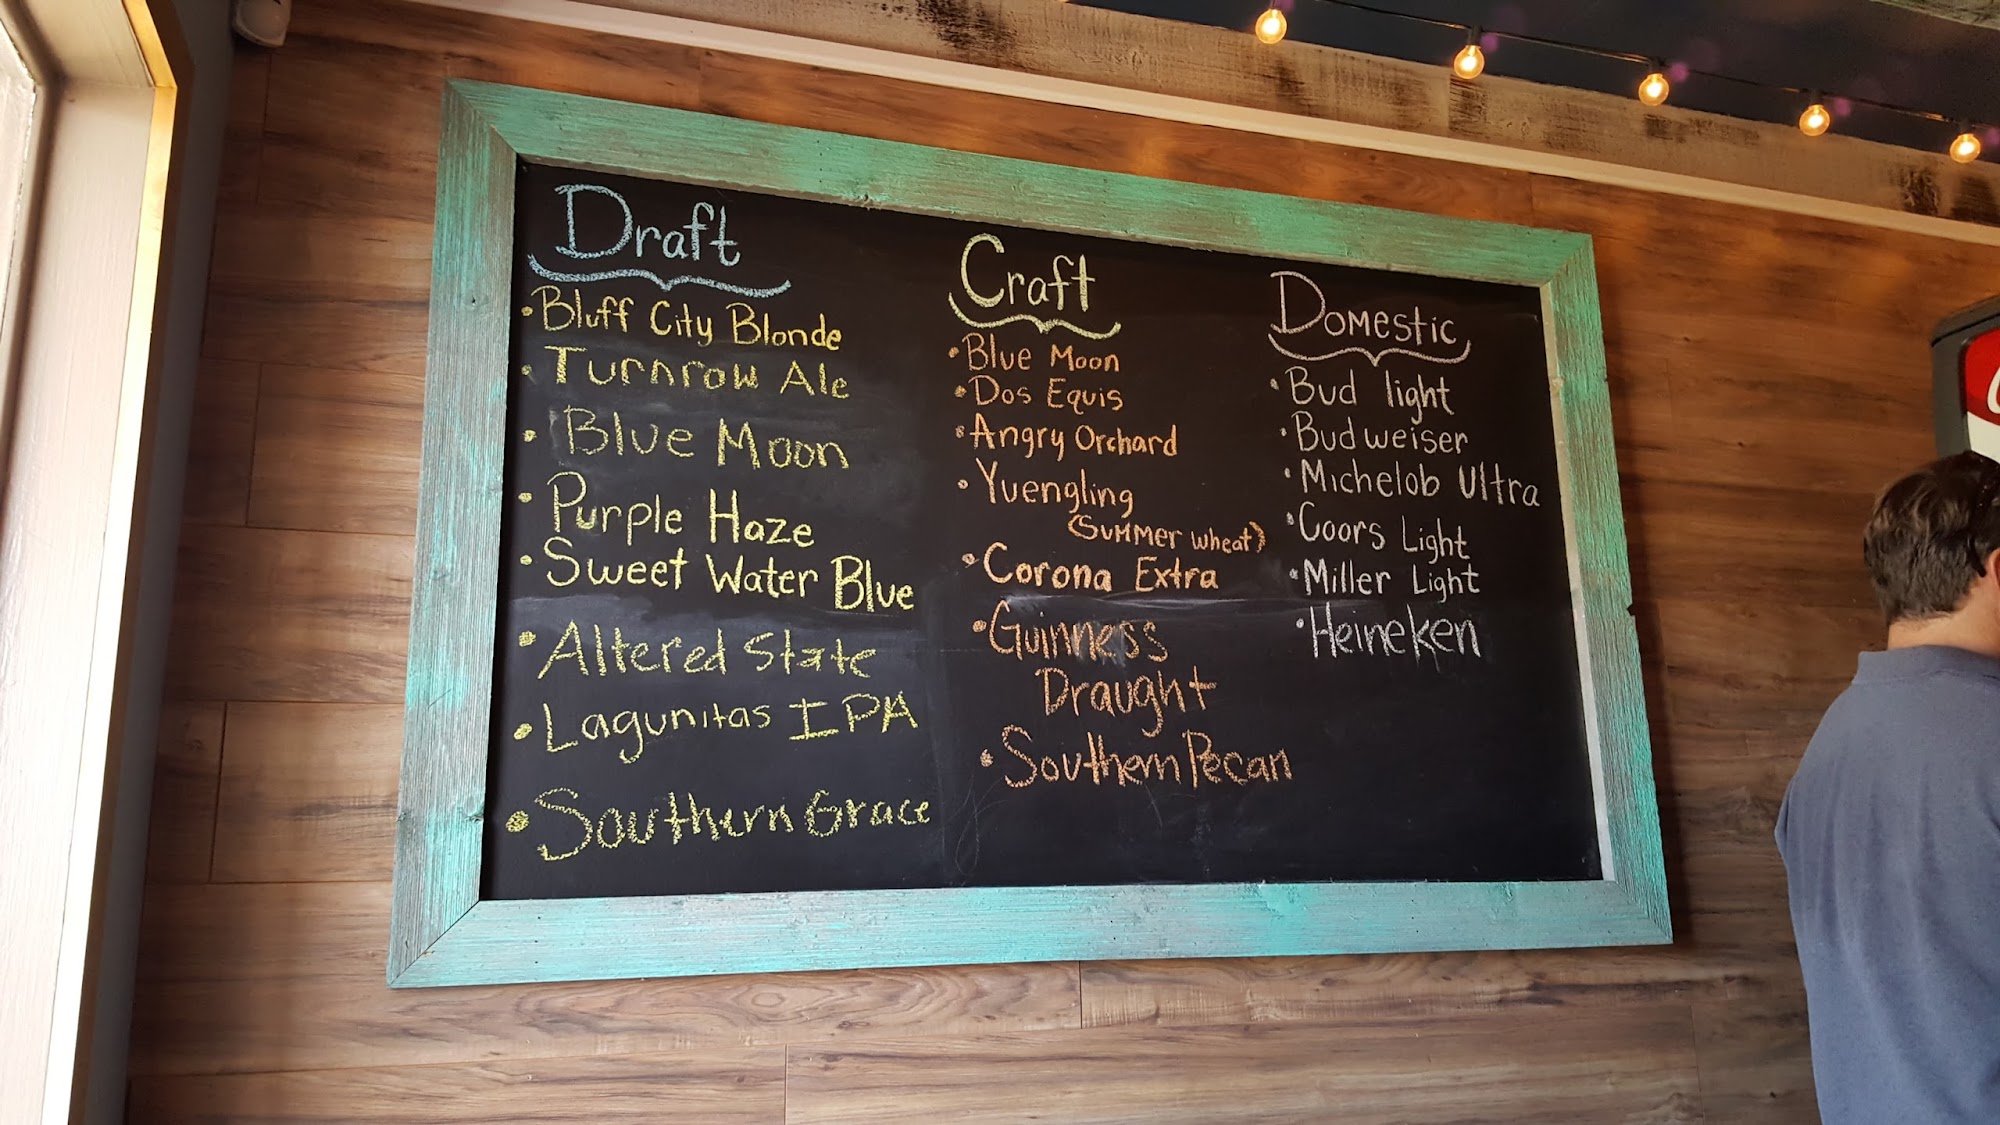 Draft
• Bluff City Blonde
• Turnrow Ale
• Blue Moon
• Purple Haze
• Sweet Water Blue
• Altered State
• Lagunitas IPA
• Southern Grace
Craft
• Blue Moon
• Dos Equis
• Angry Orchard
• Yuengling
(Summer Wheat)
• Corona Extra
• Guinness
Draught
• Southern Pecan
Domestic
• Bud light
• Budweiser
• Michelob Ultra
• Coors Light
• Miller Light
• Heineken